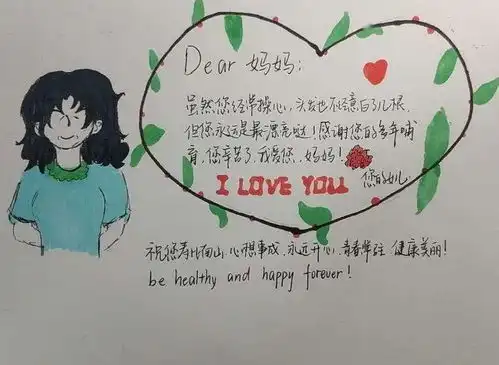 Dear 妈妈:
虽然您经常操心,头发也不经意白了几根,
但您永远是最漂亮哒!感谢您的多年哺
育,您辛苦了,我爱您,妈妈!
I LOVE YOU
您的女儿
祝您寿比南山,心想事成,永远开心,青春常驻 健康美丽!
be healthy and happy forever!